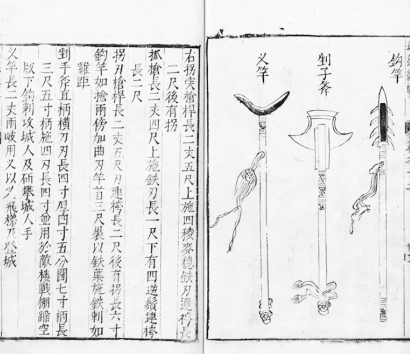 鈎竿
剉子斧
乂竿
右拐突槍桿長二丈五尺上施四稜麥穗鉄刃連袴長
二尺後有拐
抓槍長二丈四尺上施鉄刃長一尺下有四逆鬚連袴
長二尺
拐刃槍桿長二丈五尺刃連袴長二尺後有拐長六寸
鈎竿如槍兩傍加曲刃竿首三尺裹以鉄葉施鉄刺如
雞距
剉手斧直柄橫刃刃長四寸厚四寸五分闊七寸柄長
三尺五寸柄施四刃長四寸並用於敵樓戰棚蹲空
版下鈎刺攻城人及斫攀城人手
乂竿長二丈兩岐用乂以乂飛梯及登城